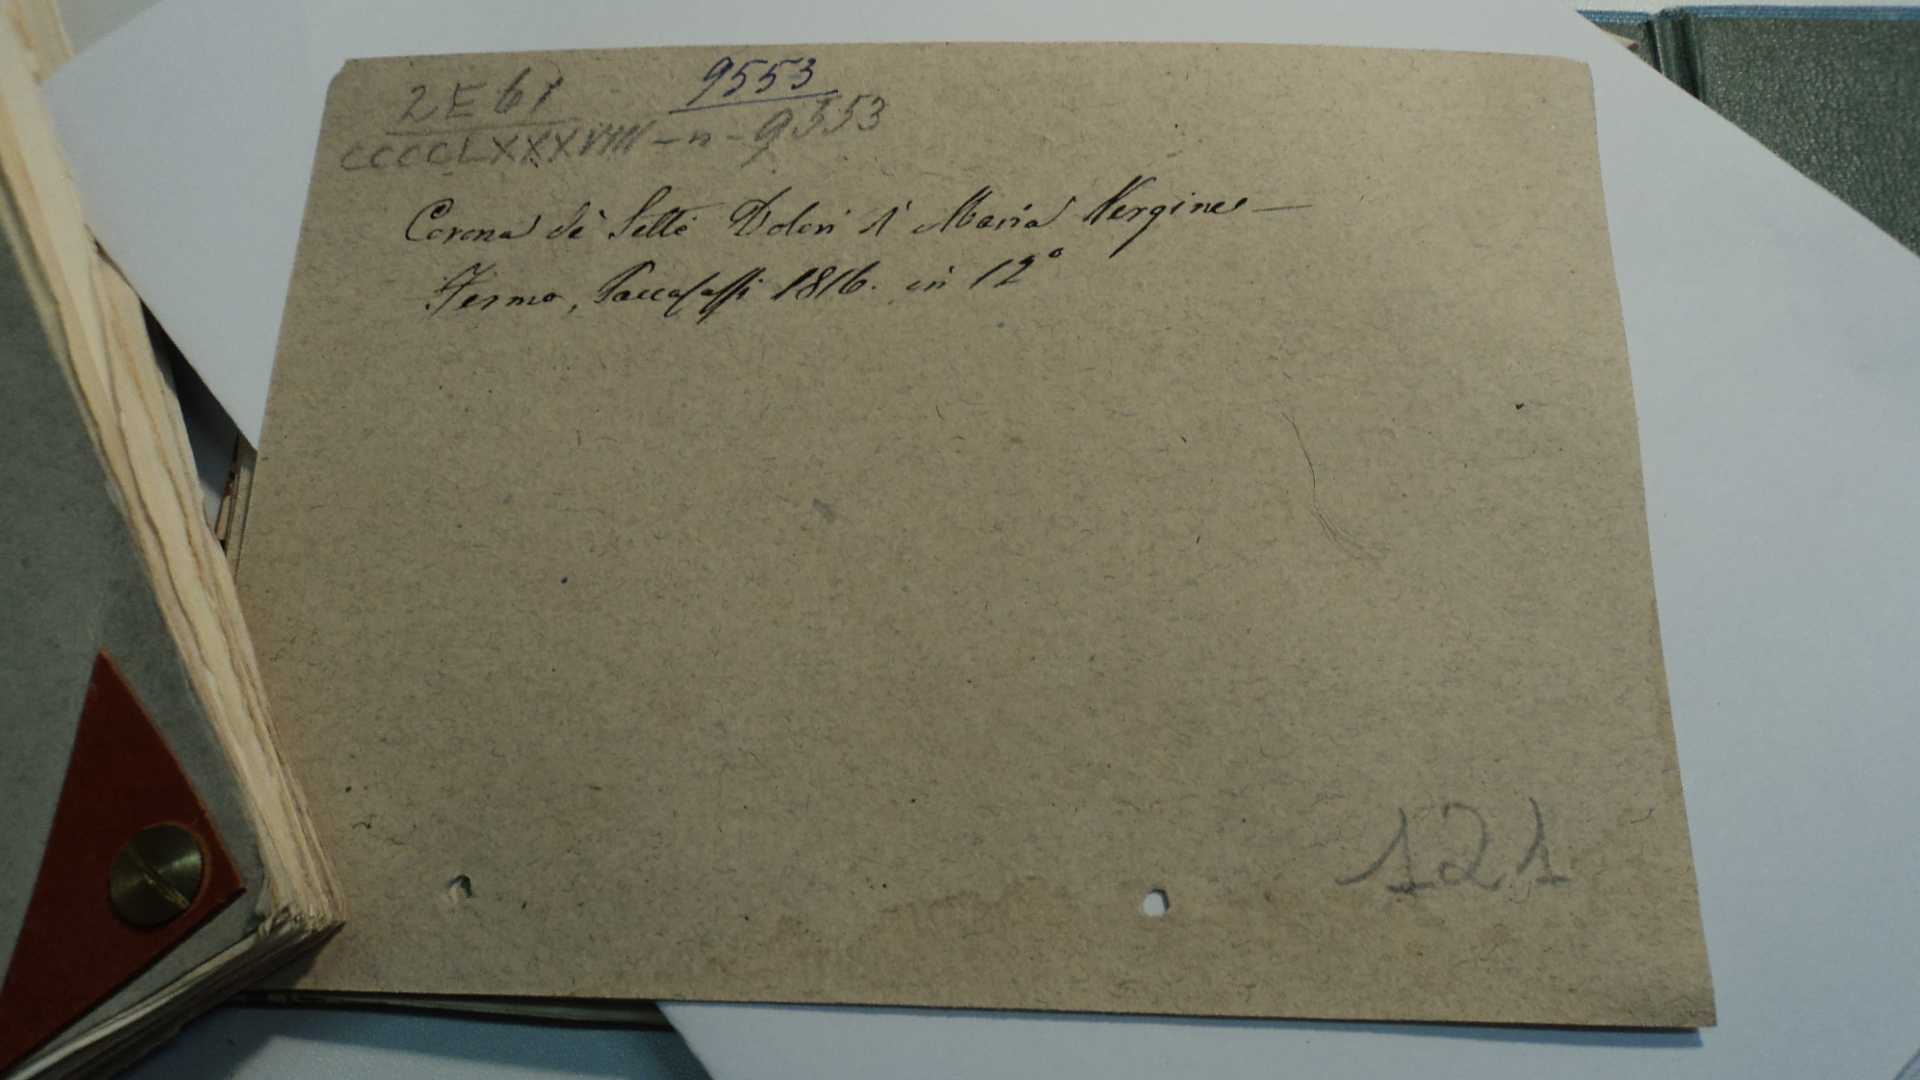 2E61 9553
CCCCLXXXVIII - n - 9553
Corona de' Sette Dolori di Maria Vergine —
Fermo, Paccasassi 1816. in 12°
121